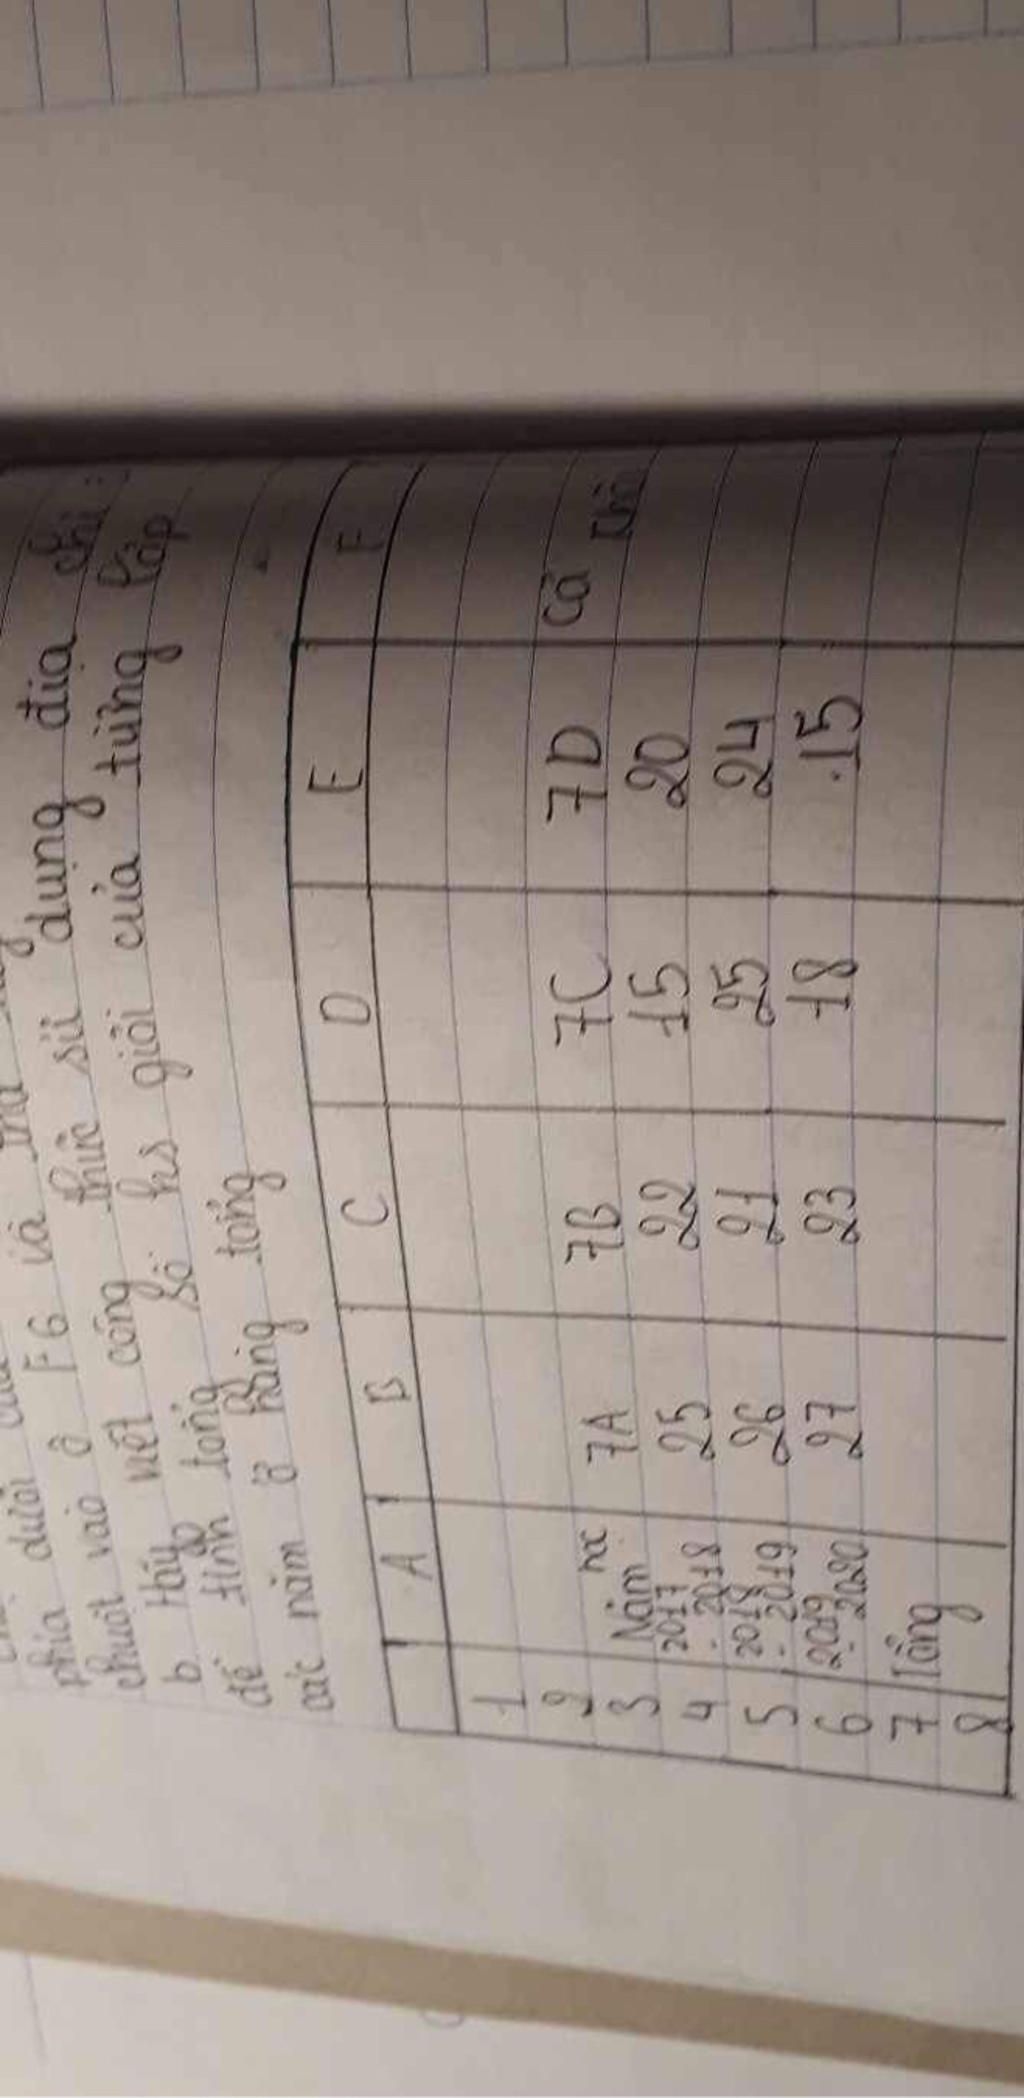 dưới
phía ở F6 và
chuột vào thức sử dụng địa chỉ :
b Hãy viết công số hs giỏi của từng lớp
để tính tổng
các năm ở hàng tổng
A B C D E F
1
2
3 Năm hc 7A 7B 7C 7D Cả
4 2017 - 2018 25 22 15 20
5 2018 - 2019 26 21 25 24
6 2019 - 2020 27 23 18 .15
7 Tổng
8